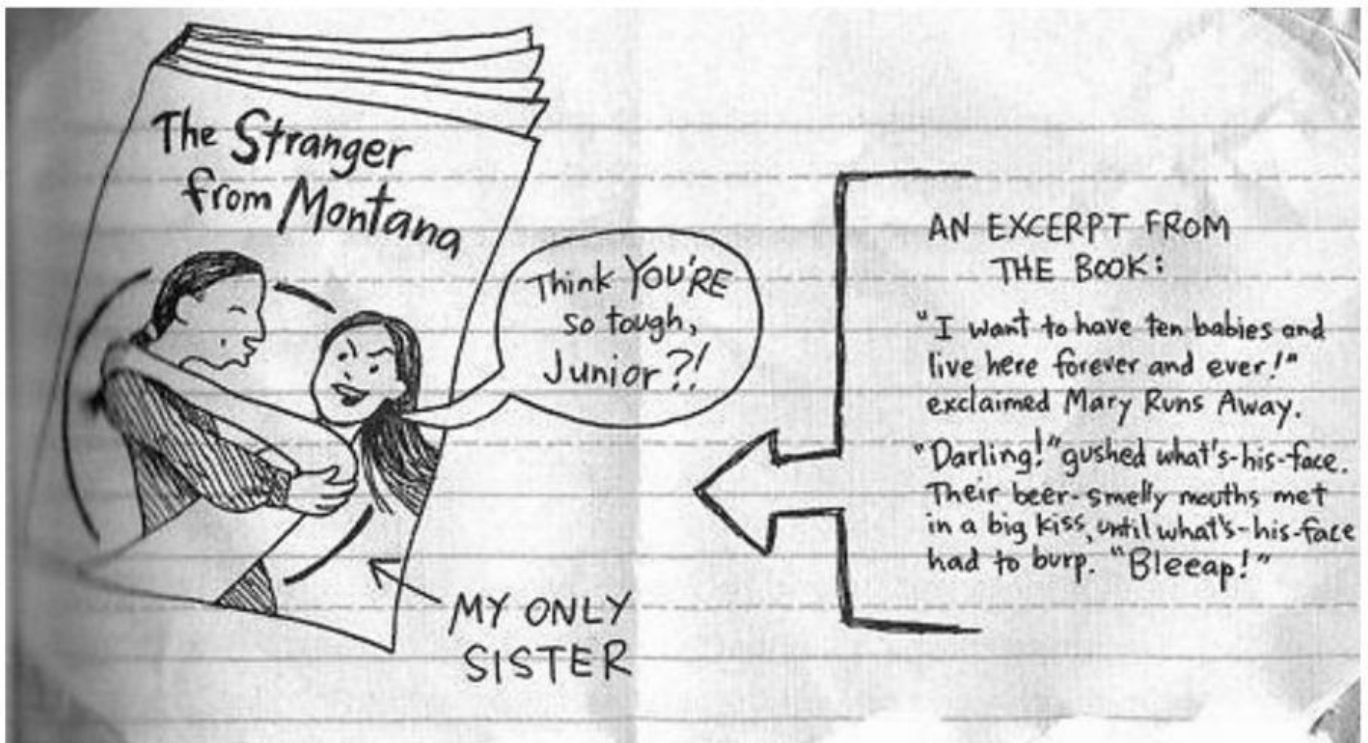 The Stranger
from Montana
Think YOU'RE
so tough,
Junior?!
MY ONLY
SISTER
AN EXCERPT FROM
THE BOOK:
"I want to have ten babies and
live here forever and ever!"
exclaimed Mary Runs Away.
"Darling!" gushed what's-his-face.
Their beer-smelly mouths met
in a big kiss, until what's-his-face
had to burp. "Bleeap!"